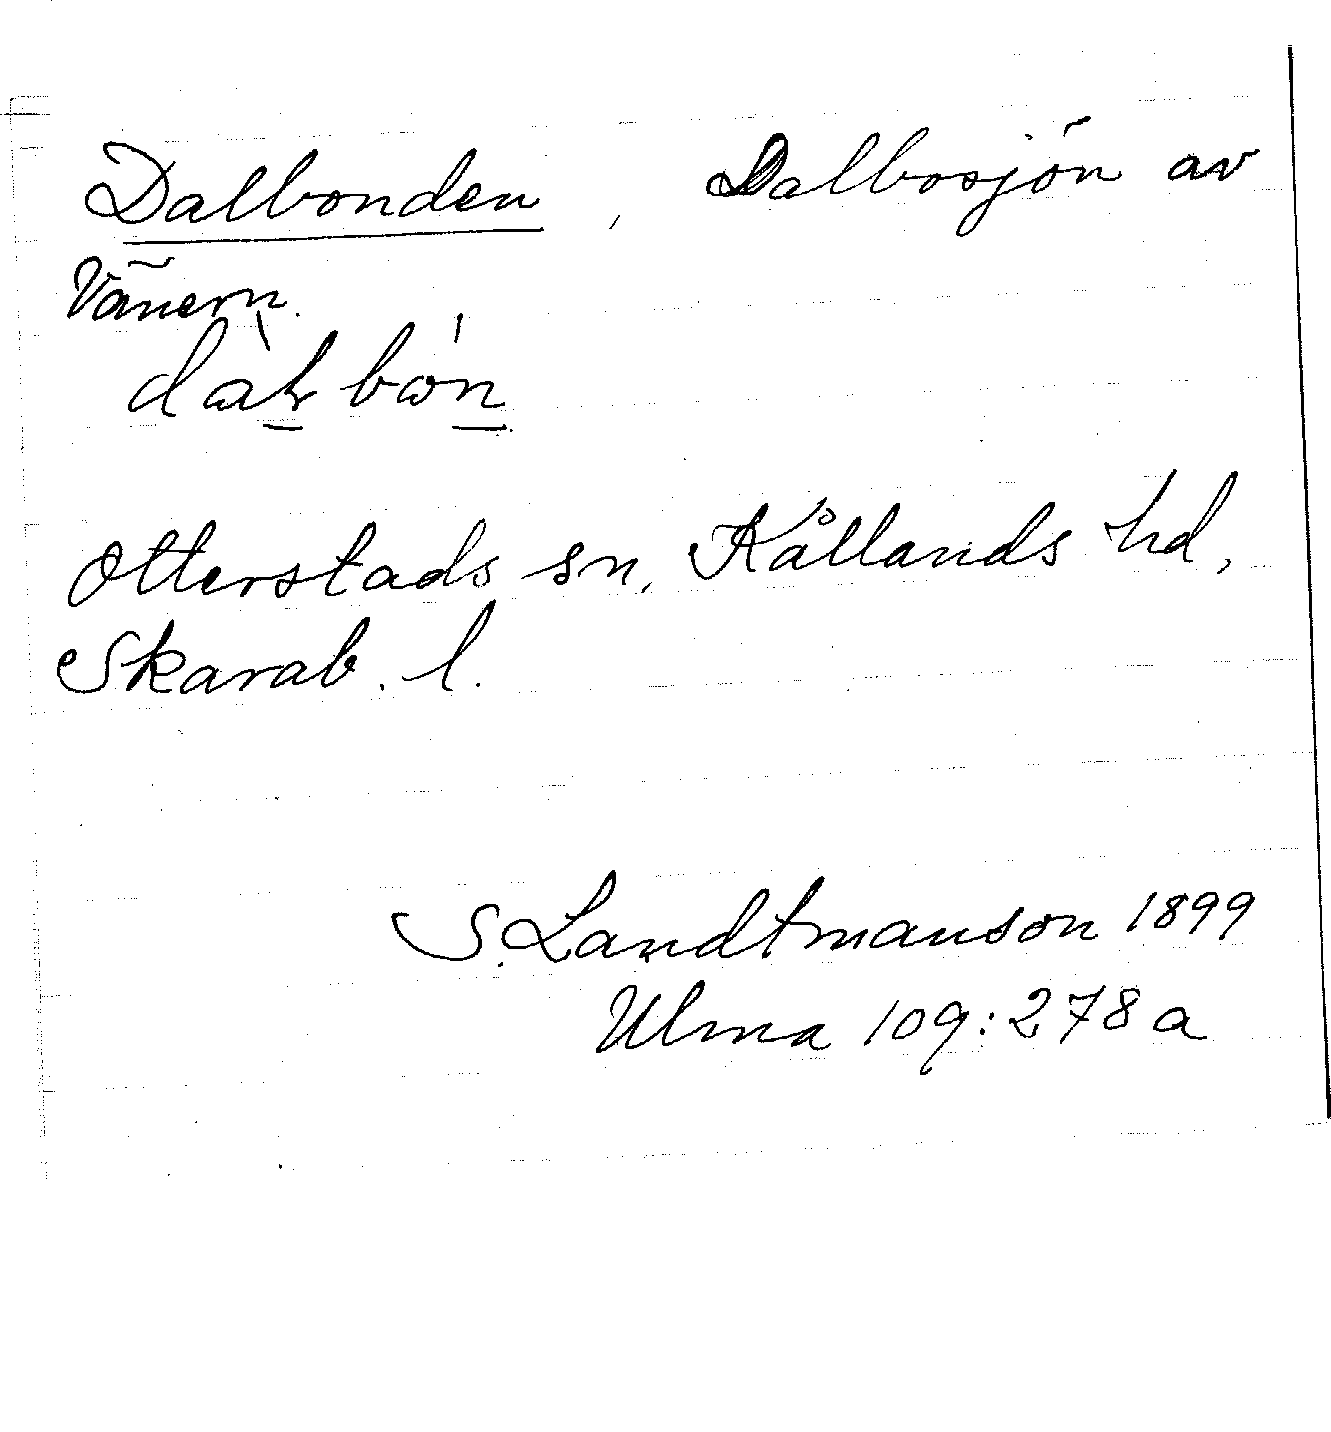 Dalbonden, Dalbosjön av
Vänern.
Otterstads sn, Kållands hd,
Skarab. l.
S. Landtmanson 1899
Ulma 109:278a